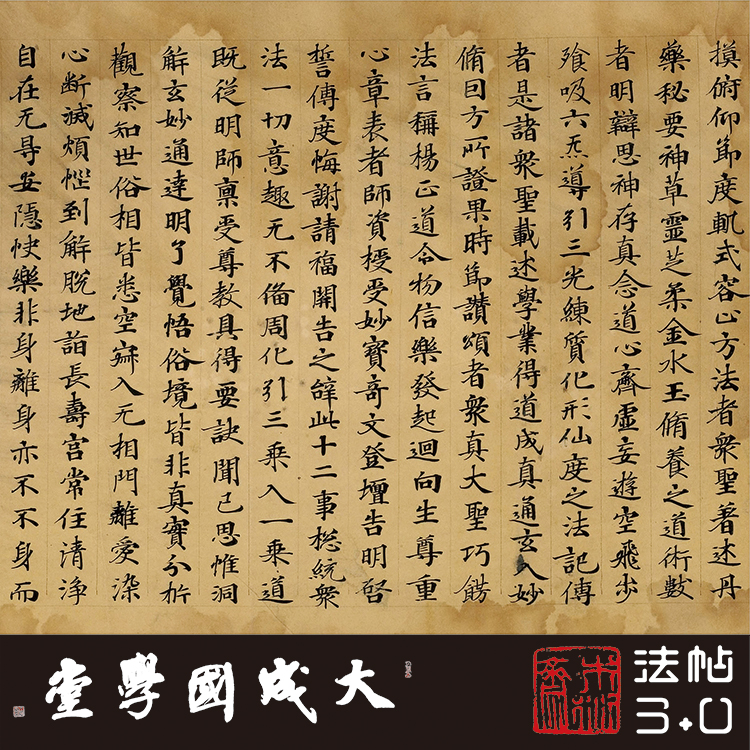 摸俯仰節度軌式容止方法者衆聖著述丹
藥秘要神草靈芝柔金水玉脩養之道術數
者明辯思神存真念道心齋虛妄遊空飛步
飡吸六炁導引三光練質化形仙度之法記傳
者是諸衆聖載述學業得道成真通玄入妙
脩因方所證果時節讚頌者衆真大聖巧餝
法言稱楊正道令物信樂發起迴向生尊重
心章表者師資授受妙寶奇文登壇告明啓
誓傳度悔謝請福開告之辭此十二事揔統衆
法一切意趣无不備周化引三乘入一乘道
既從明師稟受尊教具得要訣聞已思惟洞
解玄妙通達明了覺悟俗境皆非真實分析
觀察知世俗相皆悉空寂入无相門離愛染
心斷滅煩惱到解脫地詣長壽宮常住清淨
自在无㝵安隱快樂非身離身亦不不身而
大成國學堂
法帖
3.0